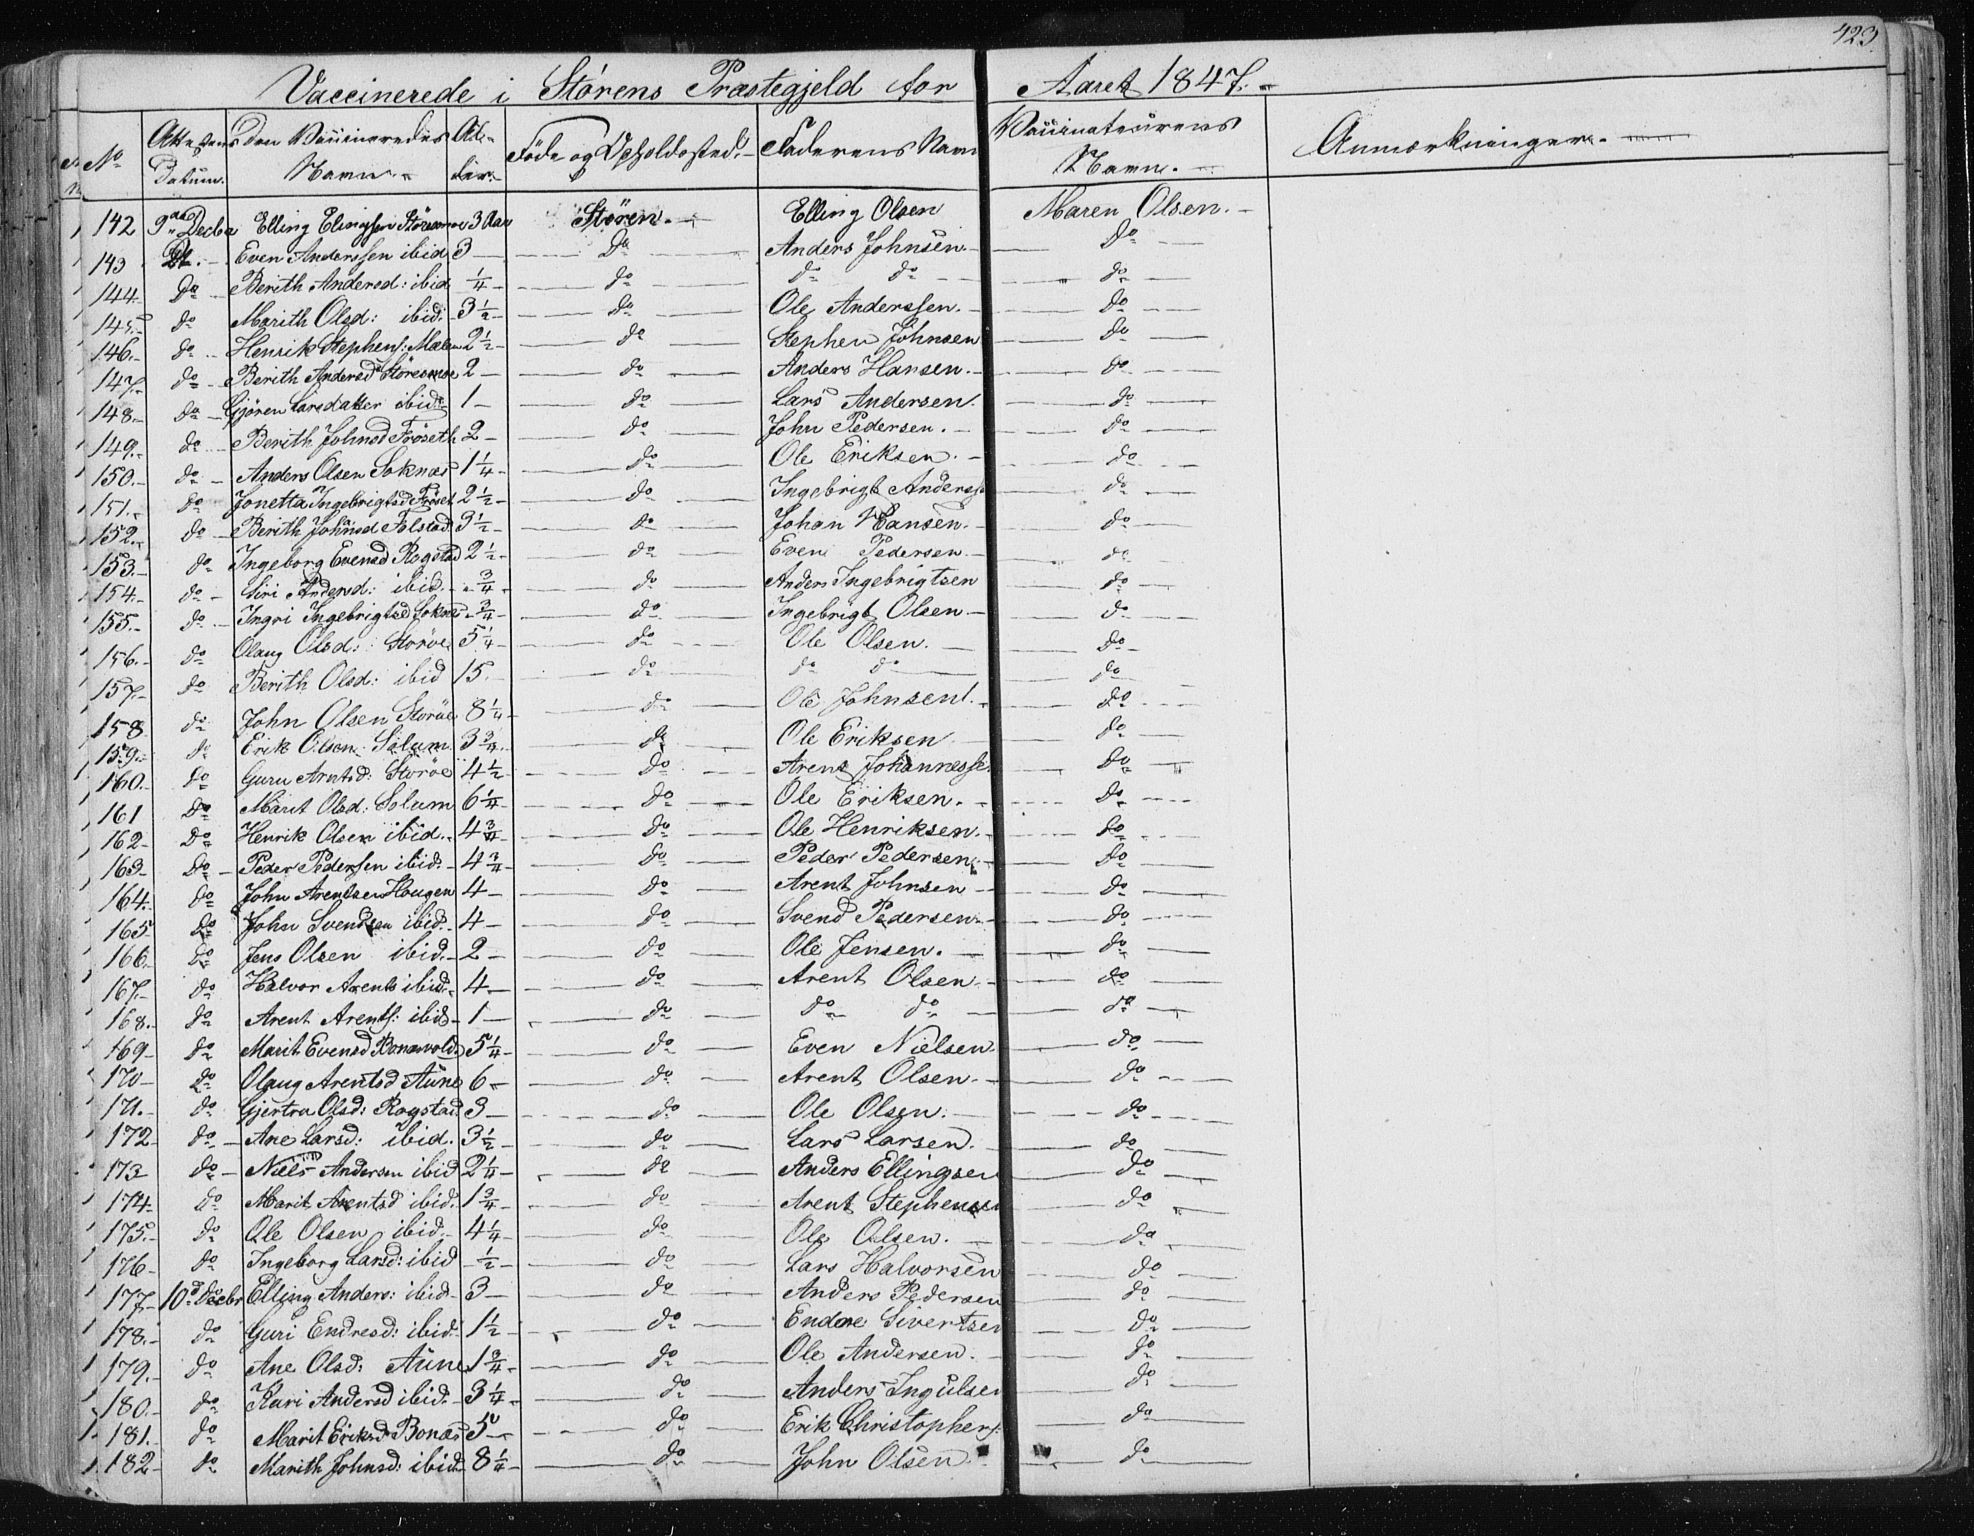 423.
Vaccinerede i Störens Præstegjeld for Aaret 1847.
No | Attestens Datum. | Den Vaccineredes Navn. | Al-der. | Föde og Opholdssted. | Faderens Navn | Vaccinateurens Navn. | Anmærkninger.
142 | 9de Decbr | Elling Elingsen Störesmoe | 3 Aar | Stören. | Elling Olsen | Maren Olsen.
143 | Do | Even Anderssen ibid | 3 | Do | Anders Johnsen | Do
144 | Do | Berith Andersd: ibid | 1/4 | do | do do | do
145 | do | Marith Olsd: ibid: | 3 1/2 | do | Ole Anderssen. | do
146. | do | Henrik Stephens: Mælen | 2 1/2 | do | Stephen Johnsen | do
147. | do | Berith Andersd Störesmoe | 2 | do | Anders Hansen. | do
148. | do | Gjören Larsdatter ibid: | 1 | do | Lars Andersen. | do
149. | do | Berith Johnsd Fröseth | 2 | do | John Pedersen. | do
150. | do | Anders Olsen Soknæs | 1 1/4 | do | Ole Eriksen. | do
151. | do | Jonetta Ingebrigtsd Fröset | 2 1/2 | do | Ingebrigt Anderss | do
152. | do | Berith Johnsd Folstad | 3 1/2 | do | Johan Hansen. | do
153. | do | Ingeborg Evensd Rogstad | 2 1/2 | do | Even Pedersen | do
154 | do | Siri Andersd: ibid. | 3/4 | do | Anders Ingebrigtsen | do
155. | do | Ingri Ingebrigtsd Sokne | 3/4 | do | Ingebrigt Olsen | do
156. | do | Olaug Olsd: Storöe | 5 1/4 | do | Ole Olsen. | do
157. | do | Berith Olsd: ibid | 15. | do | do do | do
158 | do | John Olsen Storöe | 8 1/4 | do | Ole Johnsen. | do
159. | do | Erik Olsen Solum | 3 3/4 | do | Ole Eriksen | do
160. | do | Guru Arntsd: Storöe | 4 1/2 | do | Arent Johannesse | do
161 | Do | Marit Olsd: Solum | 6 1/4 | do | Ole Eriksen. | do
162 | Do | Henrik Olsen ibid. | 4 3/4 | do | Ole Henriksen. | do
163 | Do | Peder Pedersen ibid. | 4 3/4 | do | Peder Pedersen | do
164. | do | John Arentsen Hougen | 4 | do | Arent Johnsen | do
165 | do | John Svendsen ibid. | 4 | do | Svend Pedersen | do
166. | do | Jens Olsen ibid. | 2 | do | Ole Jensen. | do
167. | do | Halvor Arents ibid. | 4. | do | Arent Olsen | do
168. | do | Arent Arents: ibid | 1 | do | do do | do
169 | do | Marit Evensd Bonæsvold | 5 1/4 | do | Even Nielsen | do
170 | do | Olaug Arentsd Aune | 6 | do | Arent Olsen. | do
171. | do | Gjertru Olsd: Rogstad | 3 | do | Ole Olsen. | do
172 | do | Ane Larsd: ibid. | 3 1/2 | do | Lars Larsen. | do
173 | do | Niels Andersen ibid | 2 1/4 | do | Anders Ellingsen | do
174. | do | Marit Arentsd ibid. | 1 3/4 | do | Arent Stephensen | do
175. | do | Ole Olsen ibid. | 4 1/4 | do | Ole Olsen. | do
176 | do | Ingeborg Larsd: ibid | 1/2 | do | Lars Halvorsen | do
177. | 10de Decbr | Elling Anders: ibid | 3 | do | Anders Pedersen | do
178. | do | Guri Endresd: ibid: | 1 1/2 | do | Endre Sivertsen | do
179. | do | Ane Olsd: Aune | 1 3/4 | do | Ole Andersen. | do
180. | do | Kari Andersd ibid. | 3 1/4 | do | Anders Ingulsen | do
181. | do | Marit Eriksd Bonæs | 5 | do | Erik Christophers: | do
182 | do | Marith Johnsd: ibid | 8 1/4 | do | John Olsen | do